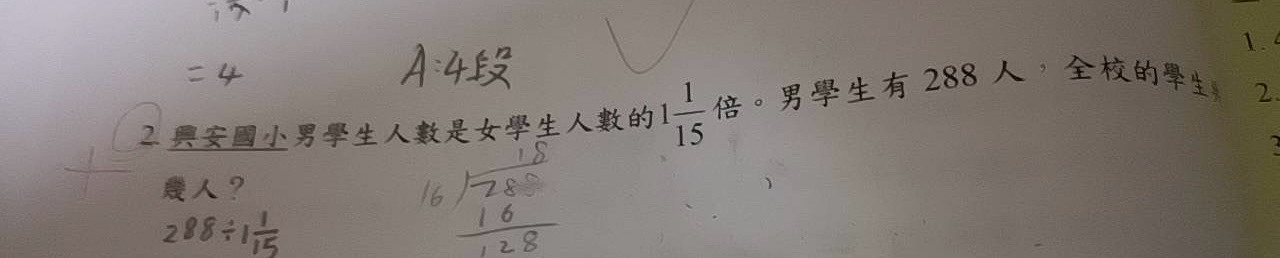 = 4
A:4段
2. 興安國小男學生人數是女學生人數的1 1/15倍。男學生有288人，全校的學生
幾人？
288÷1 1/15
18
16 288
16
128
1.
2.